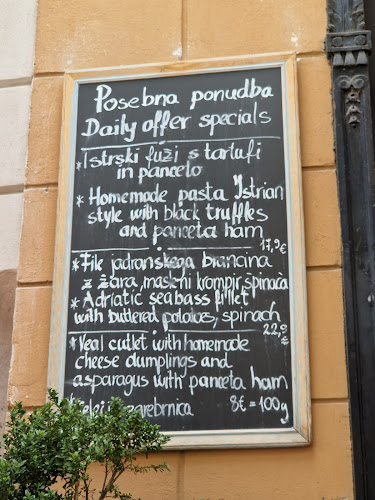 Posebna ponudba
Daily offer specials
* Istrski fuži s tartufi
in panceto
* Homemade pasta Istrian
style with black truffles
and panceta ham
17,9€
* File jadranskega brancina
z žara, maslni krompir, špinača
* Adriatic seabass fillet
with buttered potatoes, spinach
22,9
€
* Veal cutlet with homemade
cheese dumplings and
asparagus with panceta ham
zagrebrnica 8€ = 100g